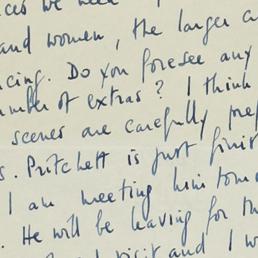 ces we need
and women, the larger
ncing. Do you foresee any
umber of extras? I think
scenes are carefully prep
s. Pritchett is just finis
I am meeting him tomo
. He will be leaving for th
visit and I w